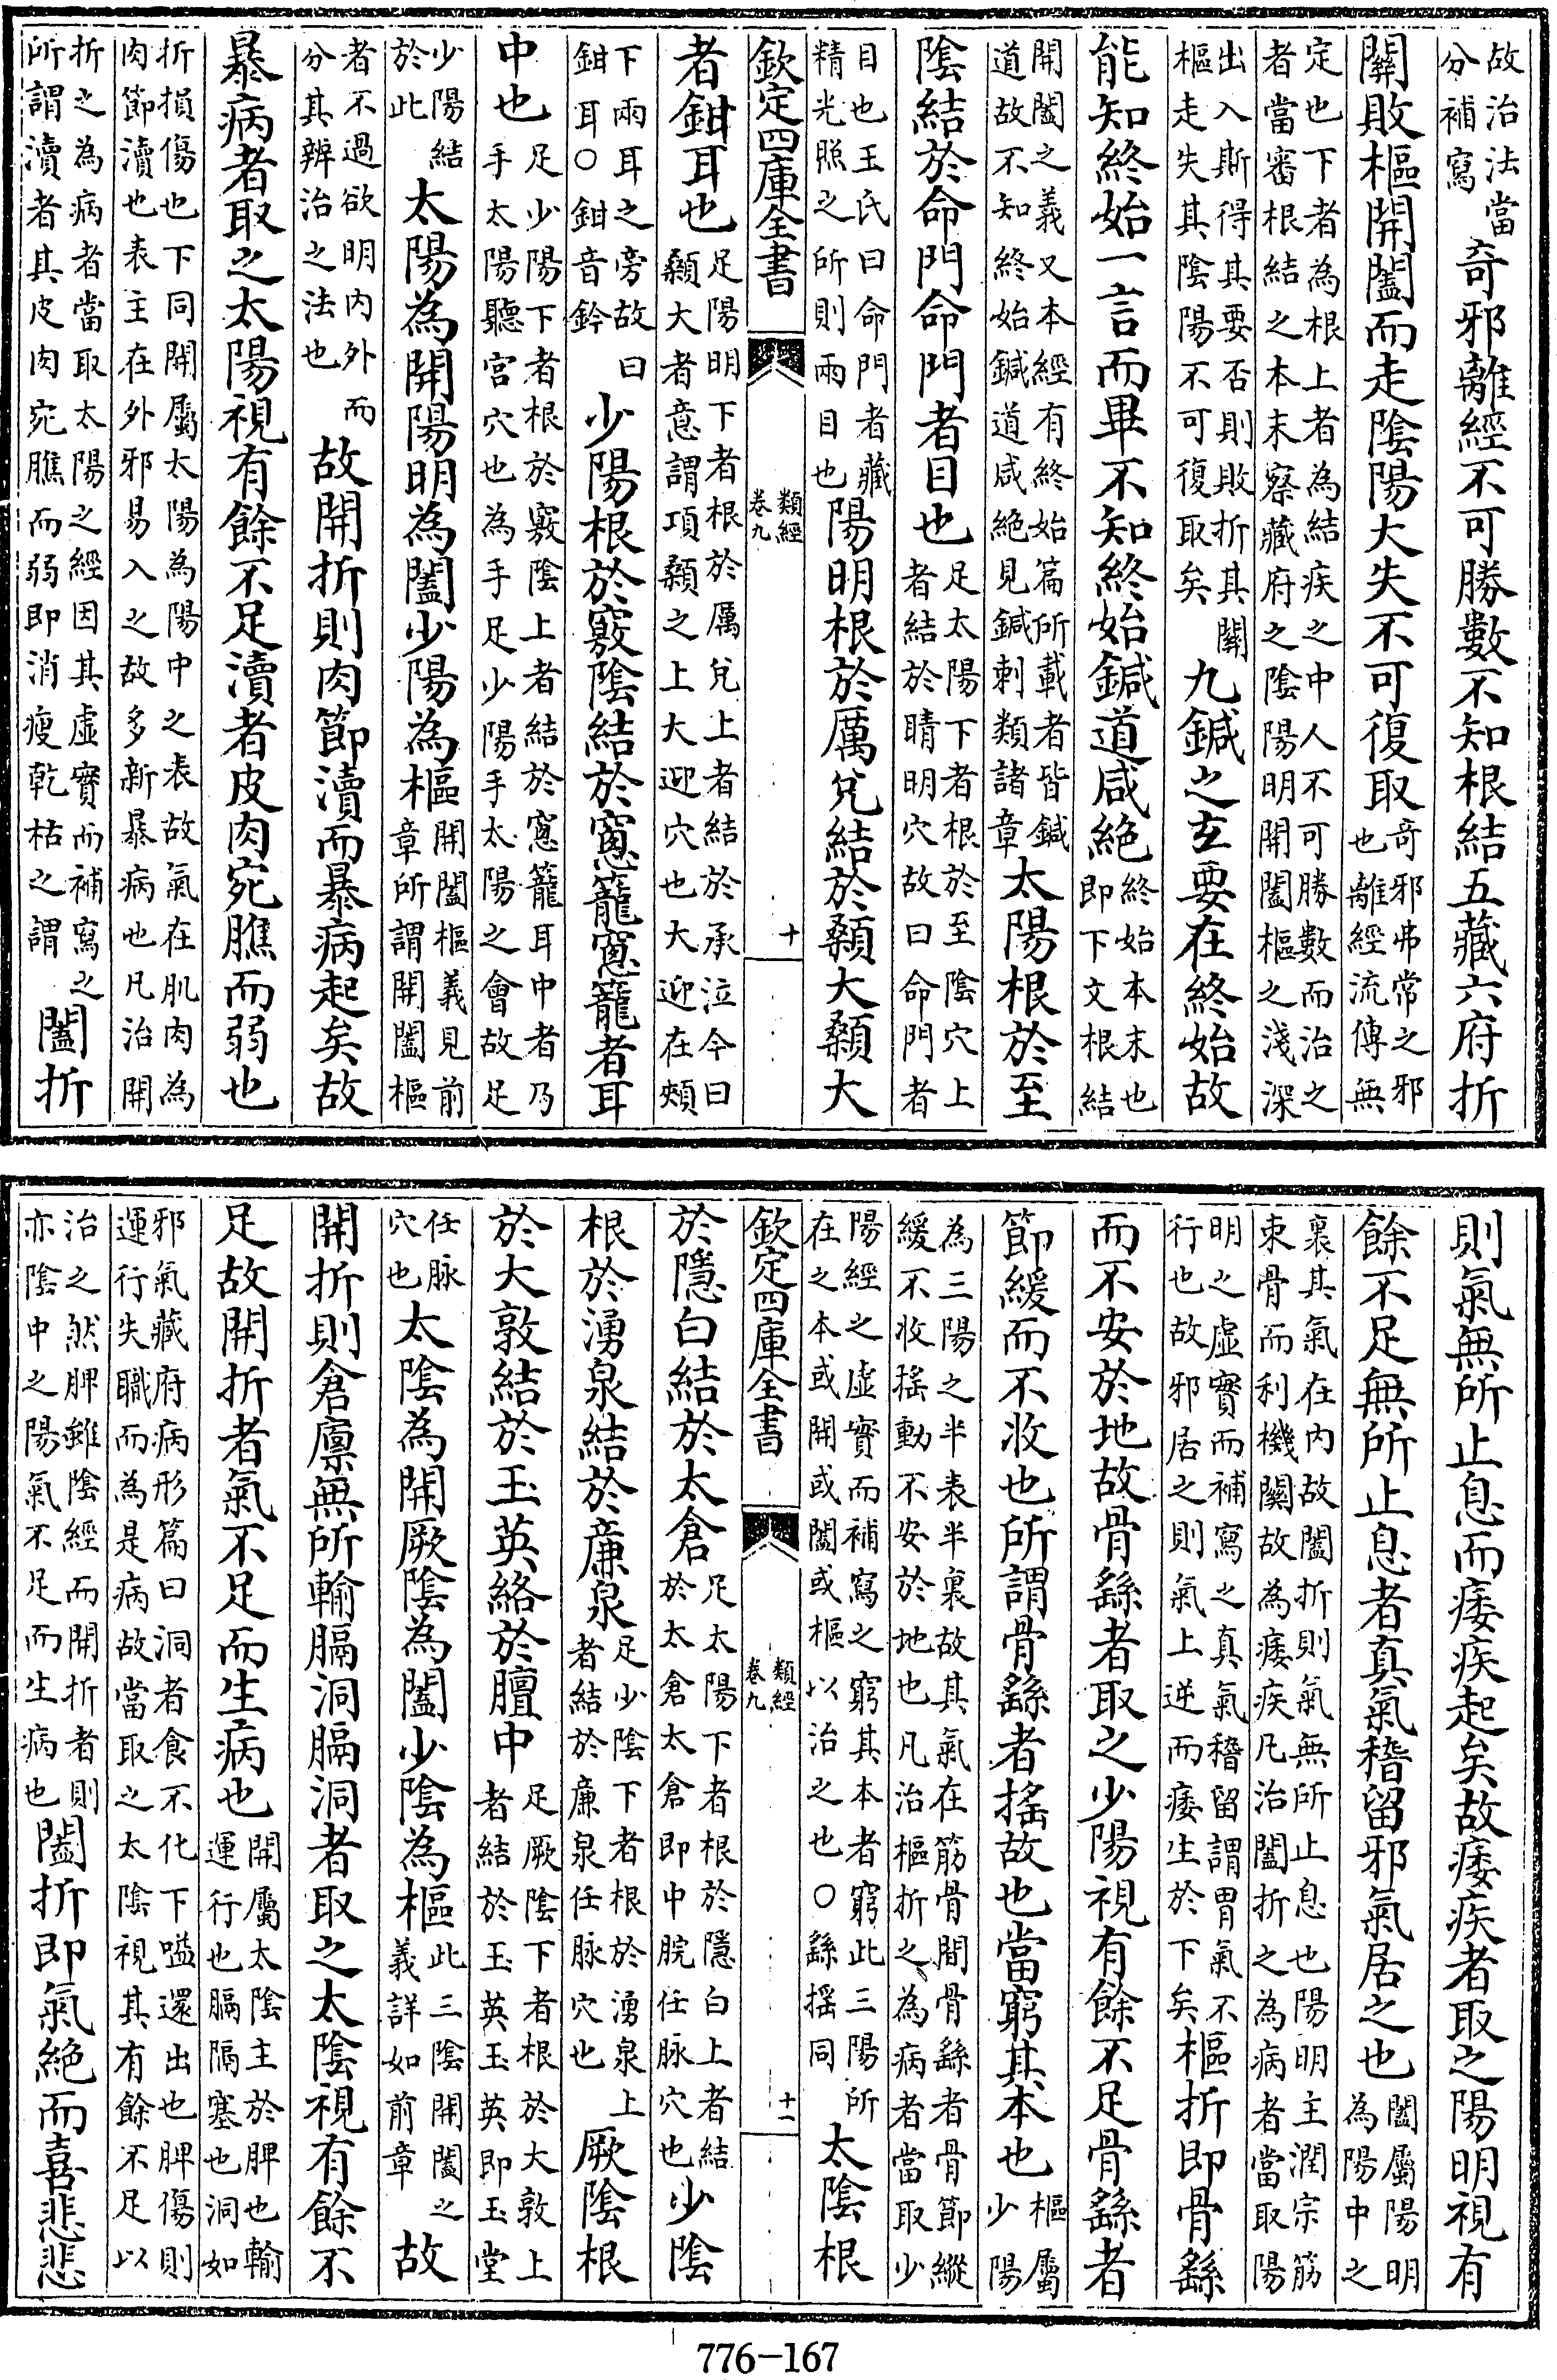 故治法當
分補寫
奇邪離經不可勝數不知根結五藏六府折
關敗樞開闔而走陰陽大失不可復取
奇邪弗常之邪
也離經流傳無
定也下者為根上者為結疾之中人不可勝數而治之
者當審根結之本末察藏府之陰陽明開闔樞之淺深
出入斯得其要否則敗折其關
樞走失其陰陽不可復取矣
九鍼之玄要在終始故
能知終始一言而畢不知終始鍼道咸絶
終始本末也
即下文根結
開闔之義又本經有終始篇所載者皆鍼
道故不知終始鍼道咸絶見鍼刺類諸章
太陽根於至
陰結於命門命門者目也
足太陽下者根於至陰穴上
者結於睛明穴故曰命門者
目也王氏曰命門者藏
精光照之所則兩目也
陽明根於厲兌結於顙大顙大
欽定四庫全書
類經
卷九
十
者鉗耳也
足陽明下者根於厲兌上者結於承泣今曰
顙大者意謂項顙之上大迎穴也大迎在頰
下兩耳之旁故曰
鉗耳○鉗音鈐
少陽根於竅陰結於窻籠窻籠者耳
中也
足少陽下者根於竅陰上者結於窻籠耳中者乃
手太陽聽宮穴也為手足少陽手太陽之會故足
少陽結
於此
太陽為開陽明為闔少陽為樞
開闔樞義見前
章所謂開闔樞
者不過欲明内外而
分其辨治之法也
故開折則肉節瀆而暴病起矣故
暴病者取之太陽視有餘不足瀆者皮肉宛膲而弱也
折損傷也下同開屬太陽為陽中之表故氣在肌肉為
肉節瀆也表主在外邪易入之故多新暴病也凡治開
折之為病者當取太陽之經因其虛實而補寫之
所謂瀆者其皮肉宛膲而弱即消瘦乾枯之謂
闔折
則氣無所止息而痿疾起矣故痿疾者取之陽明視有
餘不足無所止息者真氣稽留邪氣居之也
闔屬陽明
為陽中之
裏其氣在内故闔折則氣無所止息也陽明主潤宗筋
束骨而利機關故為痿疾凡治闔折之為病者當取陽
明之虛實而補寫之真氣稽留謂胃氣不
行也故邪居之則氣上逆而痿生於下矣
樞折即骨繇
而不安於地故骨繇者取之少陽視有餘不足骨繇者
節緩而不收也所謂骨繇者搖故也當窮其本也
樞屬
少陽
為三陽之半表半裏故其氣在筋骨間骨繇者骨節縱
緩不收搖動不安於地也凡治樞折之為病者當取少
陽經之虛實而補寫之窮其本者窮此三陽所
在之本或開或闔或樞以治之也○繇搖同
太陰根
欽定四庫全書
類經
卷九
十一
於隱白結於太倉
足太陽下者根於隱白上者結
於太倉太倉即中脘任脉穴也
少陰
根於湧泉結於廉泉
足少陰下者根於湧泉上
者結於廉泉任脉穴也
厥陰根
於大敦結於玉英絡於膻中
足厥陰下者根於大敦上
者結於玉英玉英即玉堂
任脉
穴也
太陰為開厥陰為闔少陰為樞
此三陰開闔之
義詳如前章
故
開折則倉廪無所輸膈洞膈洞者取之太陰視有餘不
足故開折者氣不足而生病也
開屬太陰主於脾也輸
運行也膈隔塞也洞如
邪氣藏府病形篇曰洞者食不化下嗌還出也脾傷則
運行失職而為是病故當取之太陰視其有餘不足以
治之然脾雖陰經而開折者則
亦陰中之陽氣不足而生病也
闔折即氣絶而喜悲悲
776-167